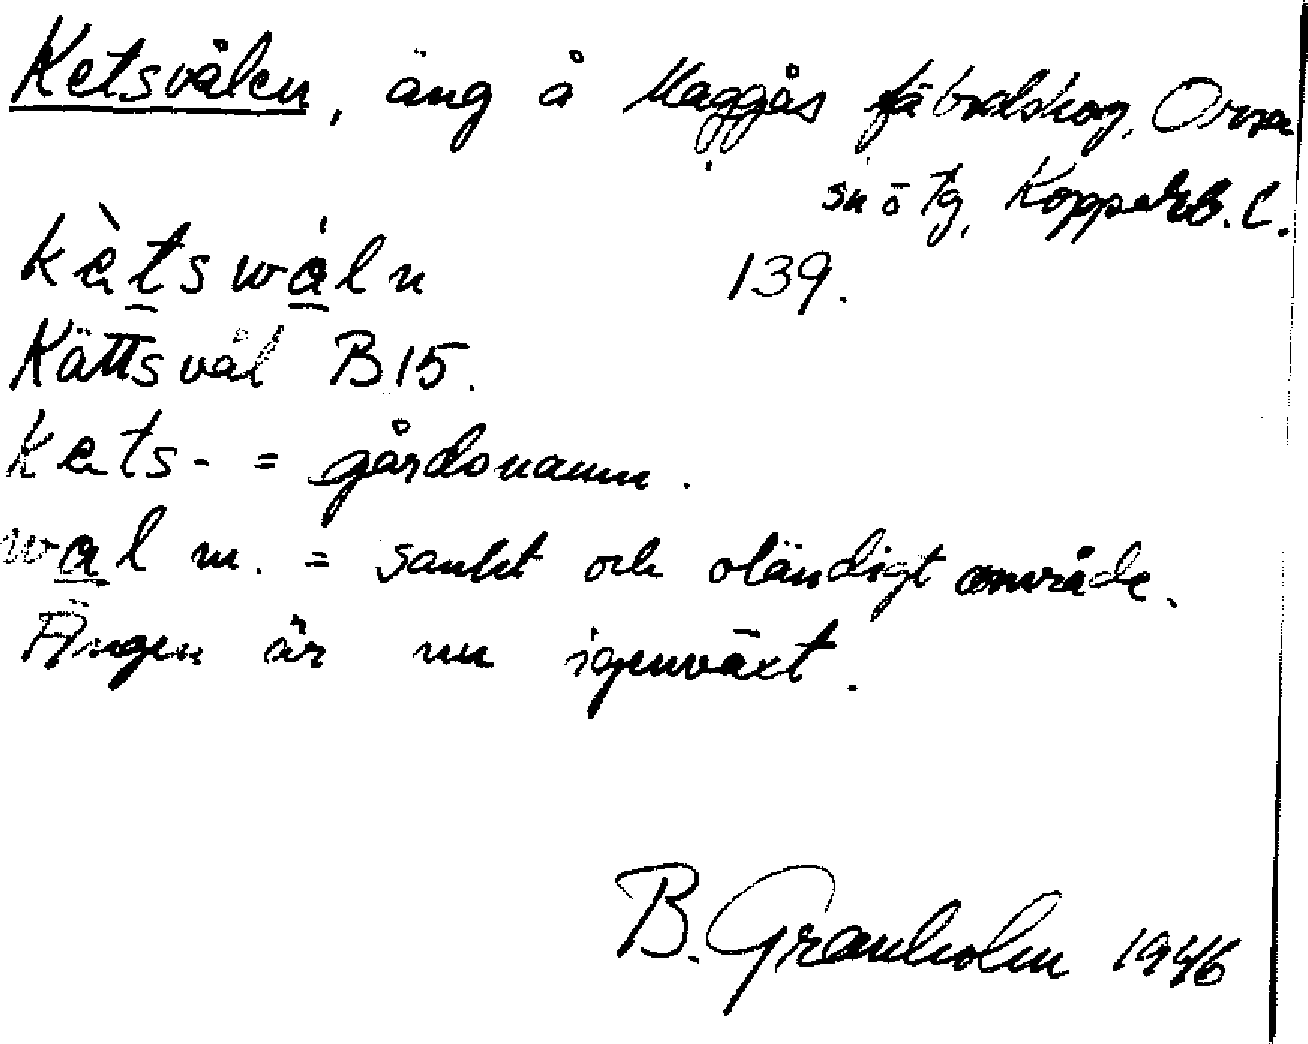 Ketsvålen, äng å Maggås fäbodskog, Orsa
sn o tg, Kopparb. l.
kètswáln 139.
Kättsvål B15.
kets- = gårdsnamn.
wal m. = sankt och oländigt område.
Ängen är nu igenväxt.
B. Granholm 1946